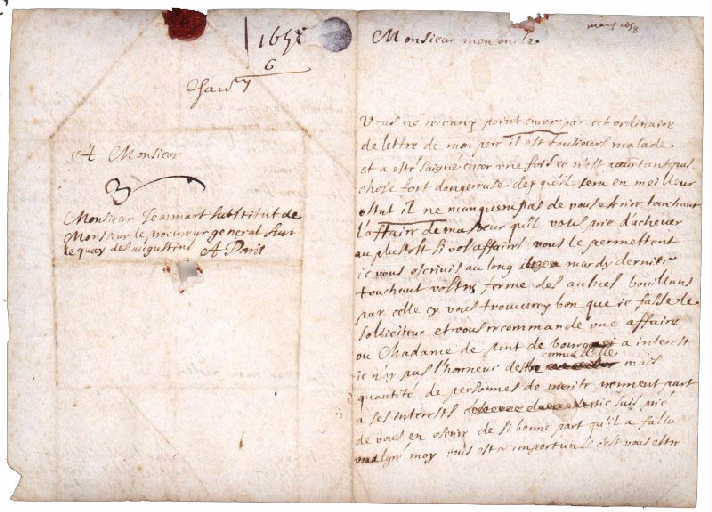 1658
6
A Monsieur
Monsieur Jeannart substitut de
Monsieur le procureur general sur
le quay des augustins A Paris
mars 1658
Monsieur mon oncle
Vous ne recevrez point encor par cet ordinaire
de lettre de mon pere il est tousiours malade
et a esté saigné encor une fois ce n'est pourtant pas
chose fort dangereuse des qu'il sera en meilleur
estat il ne manquera pas de vous escrire touchant
l'affaire de ma sœur qu'il vous prie d'achever
au plustost si vos affaires vous le permettent
ie vous escrivis au long mardy dernier
touchant vostre ferme des aulnes bouillans
par celle cy vous trouverez bon que ie fasse le
solliciteur et vous recommande une affaire
ou Madame de pont de bourg a interest
ie n'ay pas l'honneur d'estre mais
quantité de personnes de merite prennent part
a ses interests prié
de vous en escrire de si bonne part qu'il a fallu
malgré moy vous estre importun si c'est vous estre